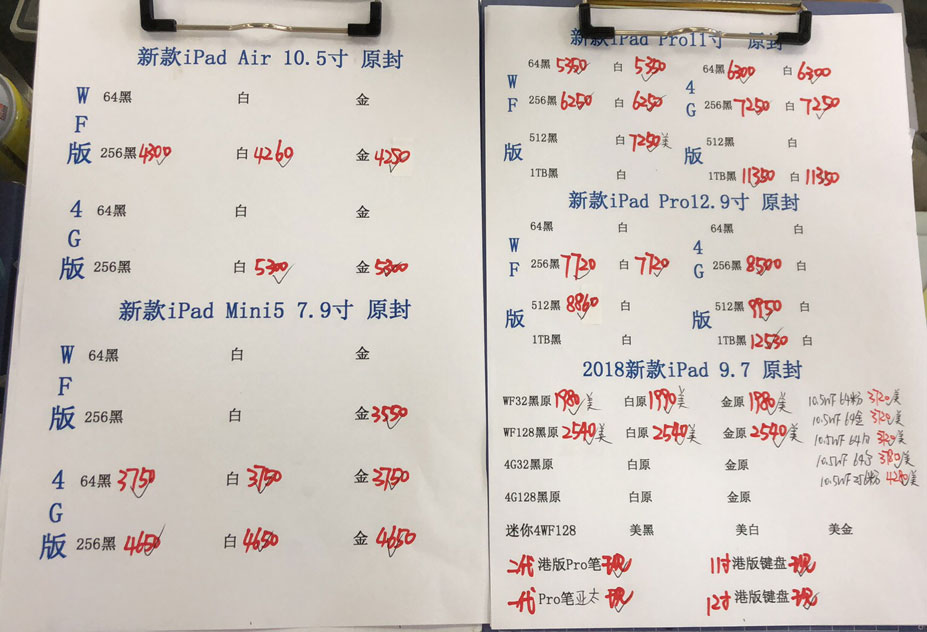 新款iPad Air 10.5寸 原封
WF版
64黑 白 金
256黑 4300 白 4260 金 4250
4G版
64黑 白 金
256黑 白 5300 金 5300
新款iPad Mini5 7.9寸 原封
WF版
64黑 白 金
256黑 白 金 3550
4G版
64黑 3750 白 3750 金 3750
256黑 4650 白 4650 金 4650
新款iPad Pro11寸 原封
WF版
64黑 5350 白 5350
256黑 6250 白 6250
512黑 白 7250美
1TB黑 白
4G版
64黑 6300 白 6300
256黑 7250 白 7250
512黑 白
1TB黑 11350 白 11350
新款iPad Pro12.9寸 原封
WF版
64黑 白
256黑 7720 白 7720
512黑 8860 白
1TB黑 白
4G版
64黑 白
256黑 8500 白
512黑 9950 白
1TB黑 12530 白
2018新款iPad 9.7 原封
WF32黑原 1980美 白原 1990美 金原 1980美
WF128黑原 2540美 白原 2540美 金原 2540美
4G32黑原 白原 金原
4G128黑原 白原 金原
迷你4WF128 美黑 美白 美金
10.5WF 64粉 3720美
10.5WF 64金 3720美
10.5WF 64 美
10.5WF 64 美
10.5WF 256粉 4280美
二代 港版Pro笔 现 11寸 港版键盘 现
一代 Pro笔 亚太 现 12寸 港版键盘 现